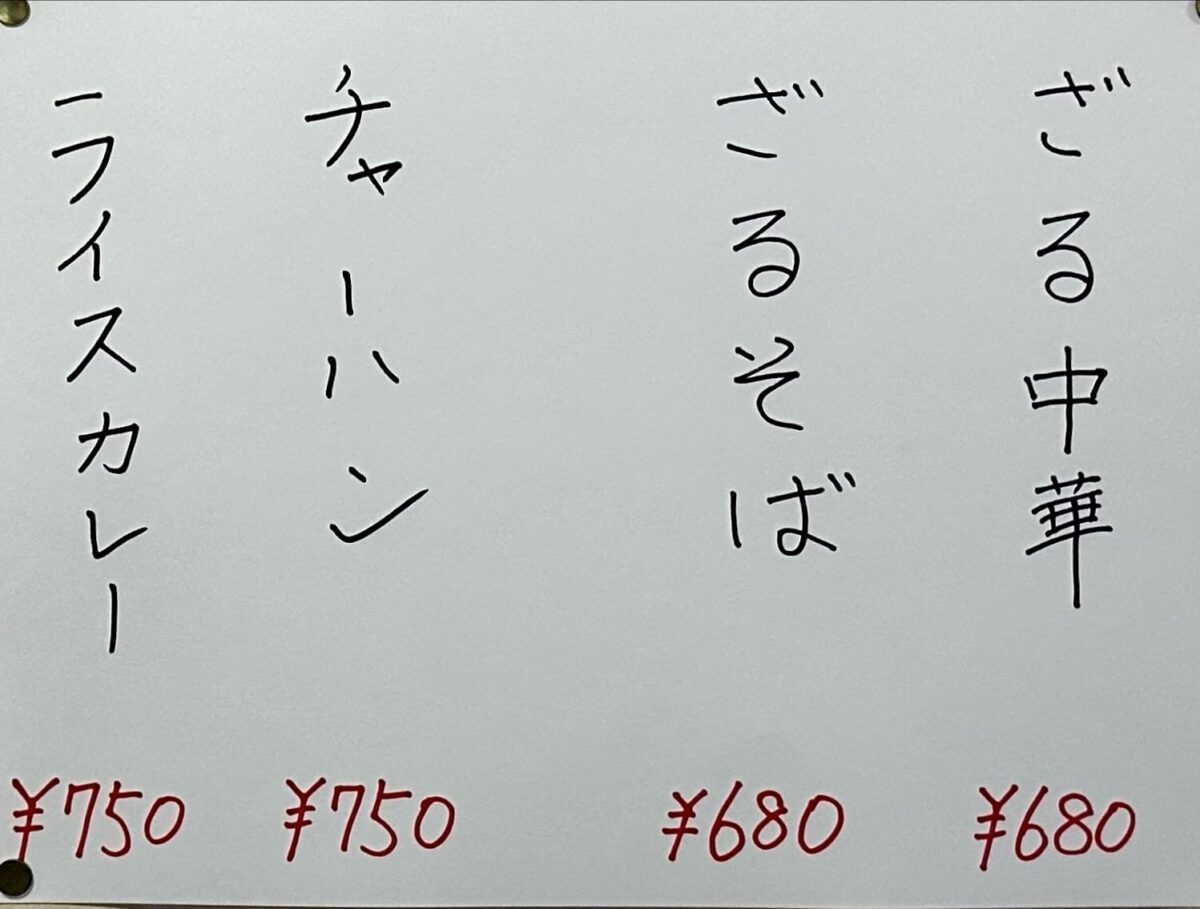 ざる中華
¥680
ざるそば
¥680
チャーハン
¥750
ライスカレー
¥750